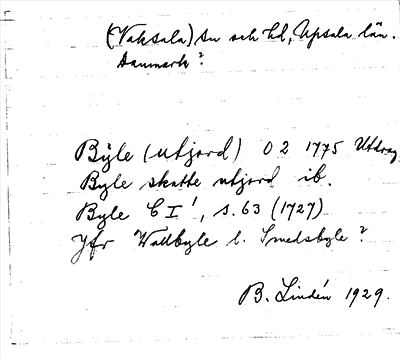 (Vaksala) sn och hd, Upsala län.
Danmark?
Byle (utjord) O 2 1775 Utdrag
Byle skatte utjord ib.
Byle C I¹, s. 63 (1727)
Jfr Wallbyle l. Smedsbyle?
B. Lindén 1929.